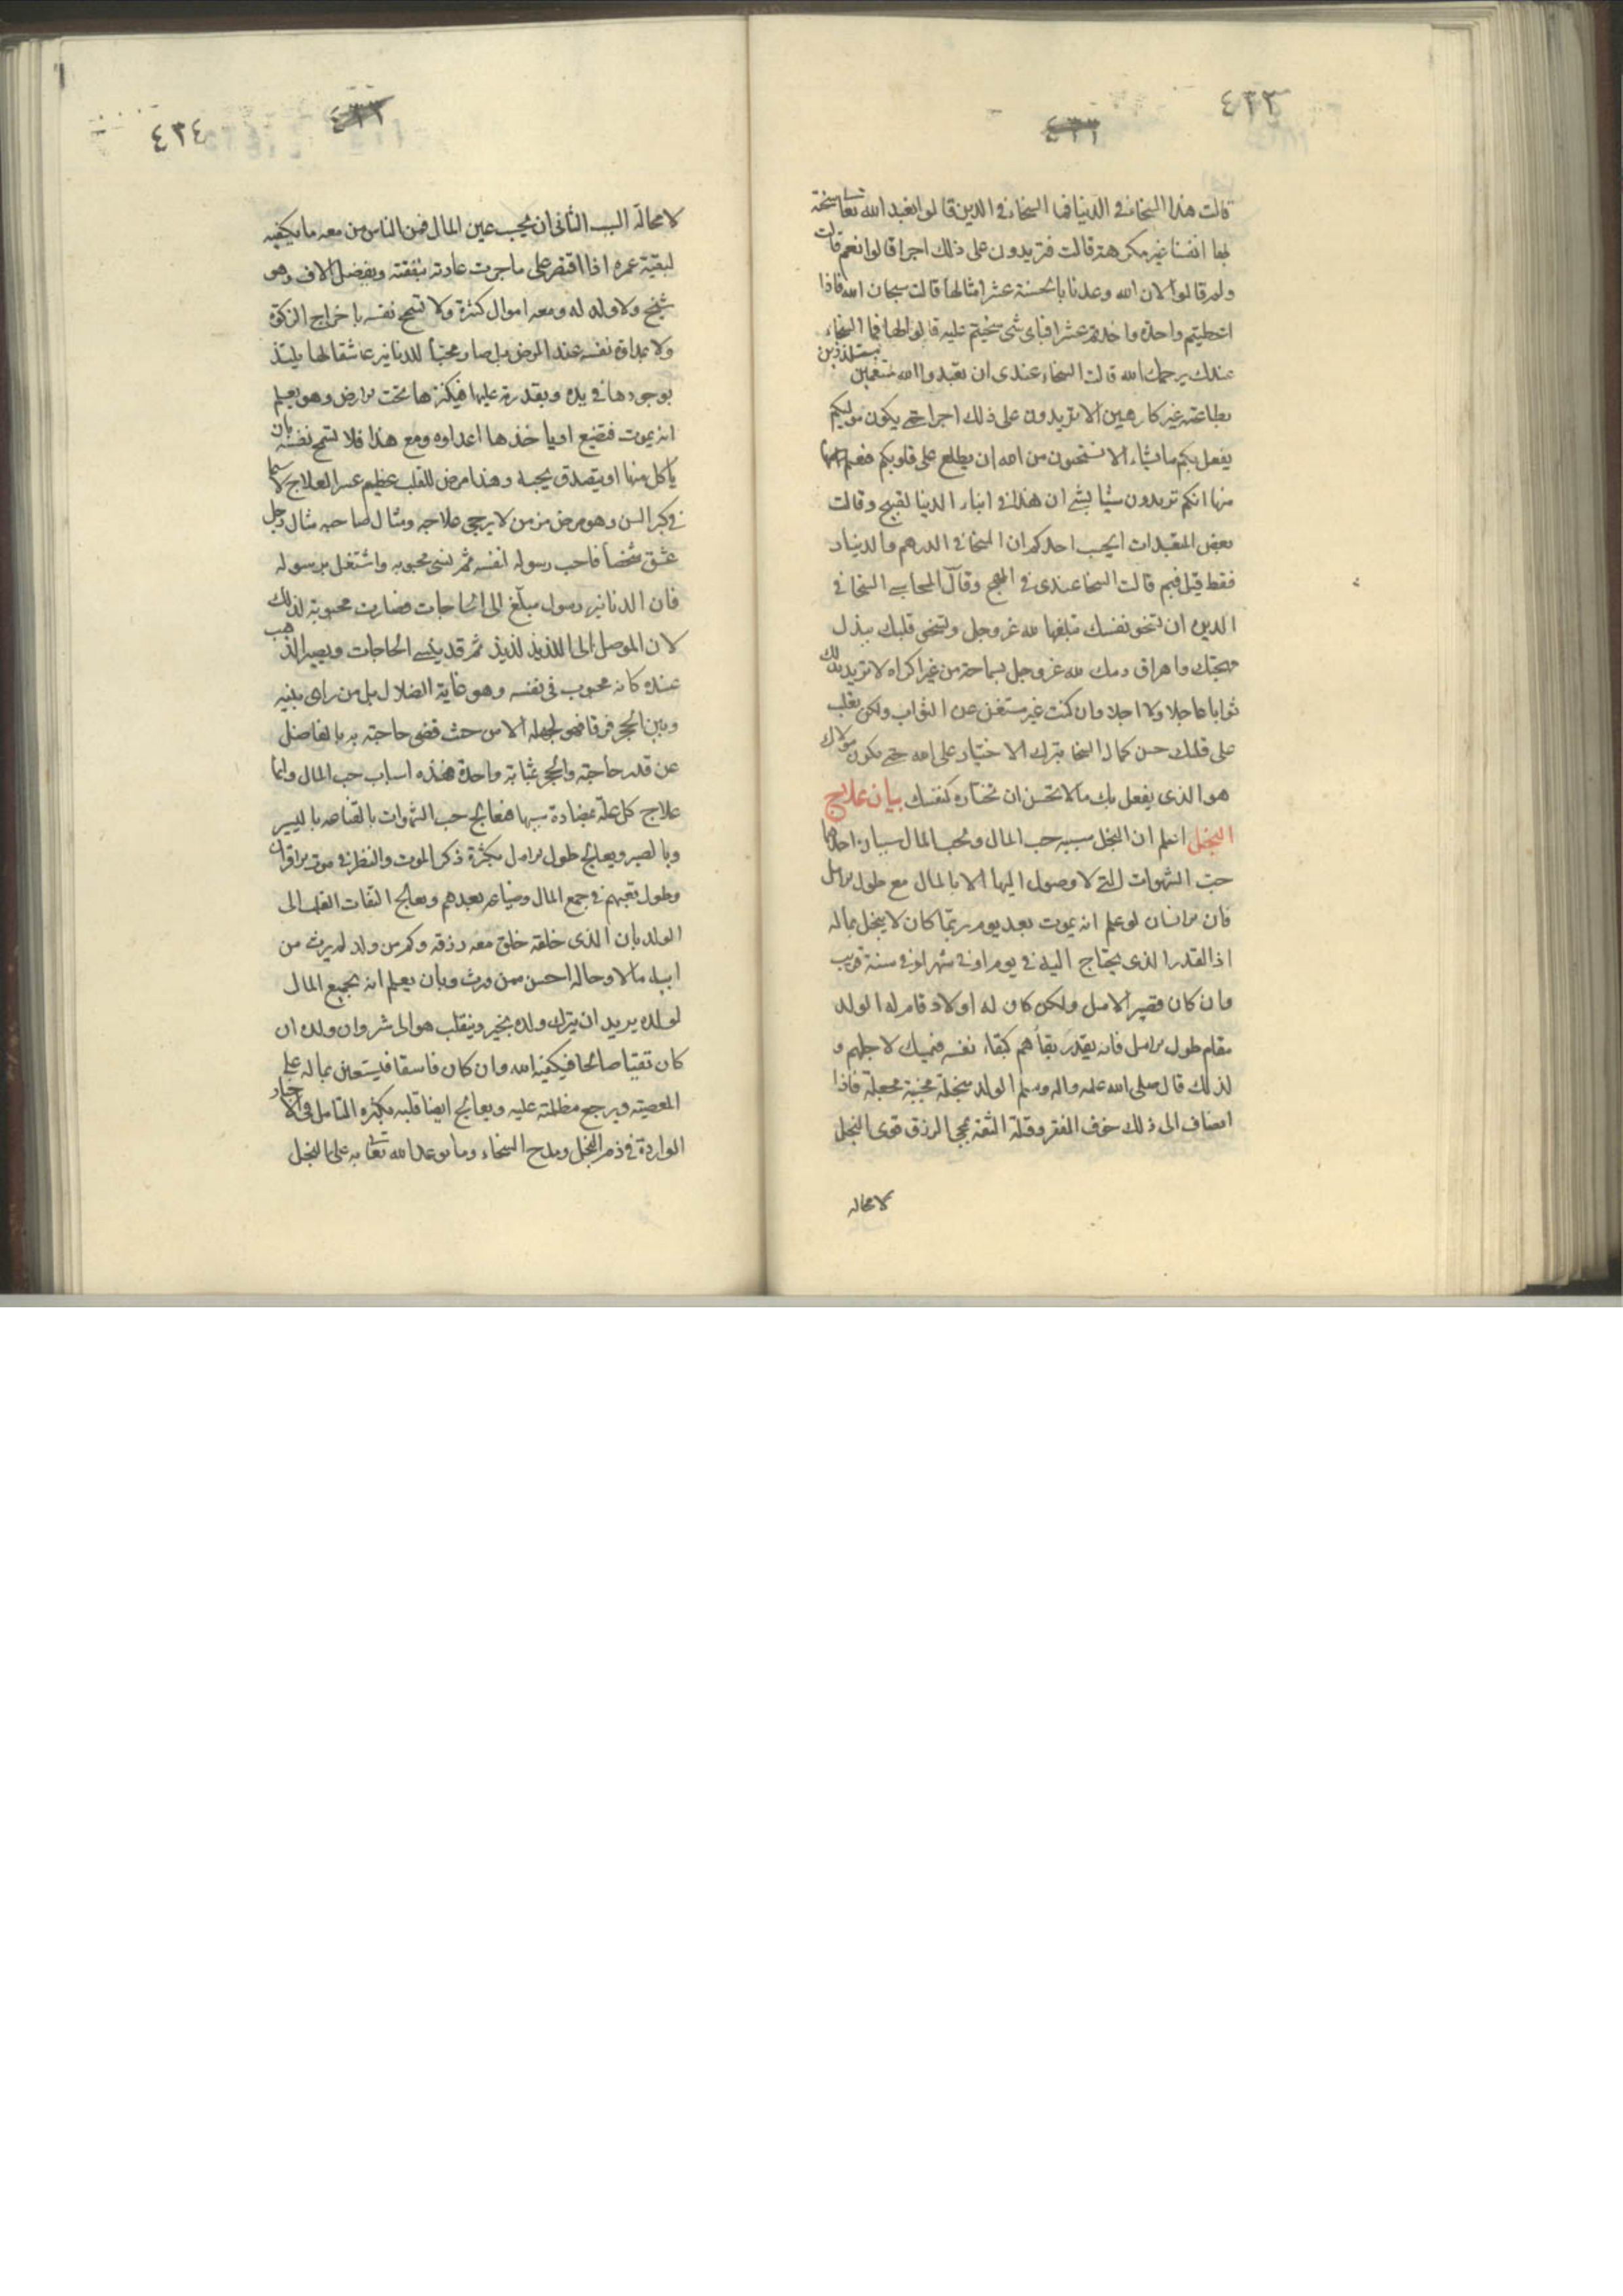 ٤٣٣
قالت هذا السخاء في الدنيا فما السخاء في الدين قالوا نعبد الله تعا سخية
بها انفسنا غير مكرهة قالت فتريدون على ذلك اجرا قالوا نعم قالت
ولم قالوا لان الله وعدنا بالحسنة عشر امثالها قالت سبحان الله فاذا
اعطيتم واحدة واخذتم عشرا فباى شئ سخيتم عليه قالوا لها فما السخاء
عندك يرحمك الله قالت السخاء عندى ان تعبدوا الله متنعمين متلذذين
بطاعته غير كارهين لا تريدون على ذلك اجرا حتى يكون موليكم
يفعل بكم ما يشاء الا تستحيون من الله ان يطلع على قلوبكم فيعلم
منها انكم تريدون شيئا بشئ ان هذا في ابناء الدنيا لقبيح وقالت
بعض المتعبدات ايحسب احدكم ان السخا في الدرهم والدينار
فقط قيل ففيم قالت السخا عندى في المهج وقال المحاسبى السخا في
الدين ان تسخو نفسك تتلفها لله عز وجل وتسخى قلبك ببذل
مهجتك واهراق دمك لله عز وجل بسماحة من غير اكراه لا تريد بذلك
ثوابا عاجلا ولا اجلا وان كنت غير مستغن عن الثواب ولكن يغلب
على قلبك حسن كمال السخا بترك الاختيار على الله حتى يكون مولاك
هو الذى يفعل بك ما لا تحسن ان تختاره لنفسك بيان علاج
البخل اعلم ان البخل سببه حب المال ولحب المال سببان احدهما
حب الشهوات التى لا وصول اليها الا بالمال مع طول الامل
فان الانسان لو علم انه يموت بعد يوم ربما كان لا يبخل بماله
اذ القدر الذى يحتاج اليه في يوم او في شهر او في سنة قريب
وان كان قصير الامل ولكن كان له اولاد قام له الولد
مقام طول الامل فانه يقدر بقاءهم كبقاء نفسه فيمسك لاجلهم و
لذلك قال صلى الله عليه واله وسلم الولد مبخلة مجبنة مجهلة فاذا
انضاف الى ذلك خوف الفقر وقلة الثقة بمجى الرزق قوى البخل
لا محالة
٤٣٤
لا محالة السبب الثانى ان يحب عين المال فمن الناس من معه ما يكفيه
لبقية عمره اذا اقتصر على ما جرت عادته بنفقته ويفضل الاف وهو
شيخ ولا ولد له ومعه اموال كثيرة ولا تسمح نفسه باخراج الزكوة
ولا بمداوة نفسه عند المرض بل صار محبا للدنانير عاشقا لها يلتذ
بوجودها في يده وبقدرته عليها فيكنزها تحت الارض وهو يعلم
انه يموت فتضيع او ياخذها اعداوه ومع هذا فلا تسمح نفسه بان
ياكل منها او يتصدق بحبة وهذا مرض للقلب عظيم عسر العلاج لا سيما
في كبر السن وهو مرض مزمن لا يرجى علاجه ومثال صاحبه مثال رجل
عشق شخصا فاحب رسوله لنفسه ثم نسى محبوبه واشتغل برسوله
فان الدنانير رسول مبلغ الى الحاجات فصارت محبوبة لذلك
لان الموصل الى اللذيذ لذيذ ثم قد ينسى الحاجات ويصير الذهب
عنده كانه محبوب في نفسه وهو غاية الضلال بل من راى بينه
وبين الحجر فرقا فهو لجهله الا من حيث قضى حاجته به بالفاضل
عن قدر حاجته والحجر بمثابة واحدة فهذه اسباب حب المال وانما
علاج كل علة بمضادة سببها فتعالج حب الشهوات بالقناعه باليسير
وبالصبر ويعالج طول الامل بكثرة ذكر الموت والنظر في موت الاقران
وطول تعبهم في جمع المال وضياعه بعدهم ويعالج التفات القلب الى
الولد بان الذى خلقه خلق معه رزقه وكم من ولد لم يرث من
ابيه مالا وحاله احسن ممن ورث وبان يعلم انه بجمع المال
لولده يريد ان يترك ولده بخير وينقلب هو الى شر وان ولده ان
كان تقيا صالحا فيكفيه الله وان كان فاسقا فيستعين بماله على
المعصية ويرجع مظلمته عليه ويعالج ايضا قلبه بكثرة التامل في الاخبار
الواردة في ذم البخل ومدح السخاء وما توعد الله تعا به على البخل